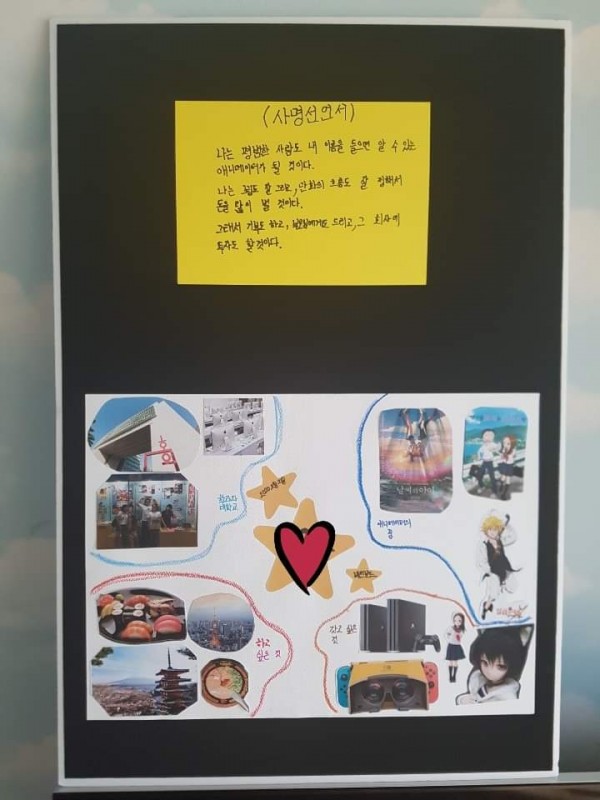 (사명선언서)
나는 평범한 사람도 내 이름을 들으면 알 수 있는
애니메이터가 될 것이다.
나는 그림도 잘 그리고, 만화의 흐름도 잘 정해서
돈을 많이 벌 것이다.
그래서 기부도 하고, 부모님에게도 드리고, 그 회사에
투자도 할 것이다.
대학교
날씨의 아이
애니메이터의
꿈
하고
싶은 것
갖고 싶은
것